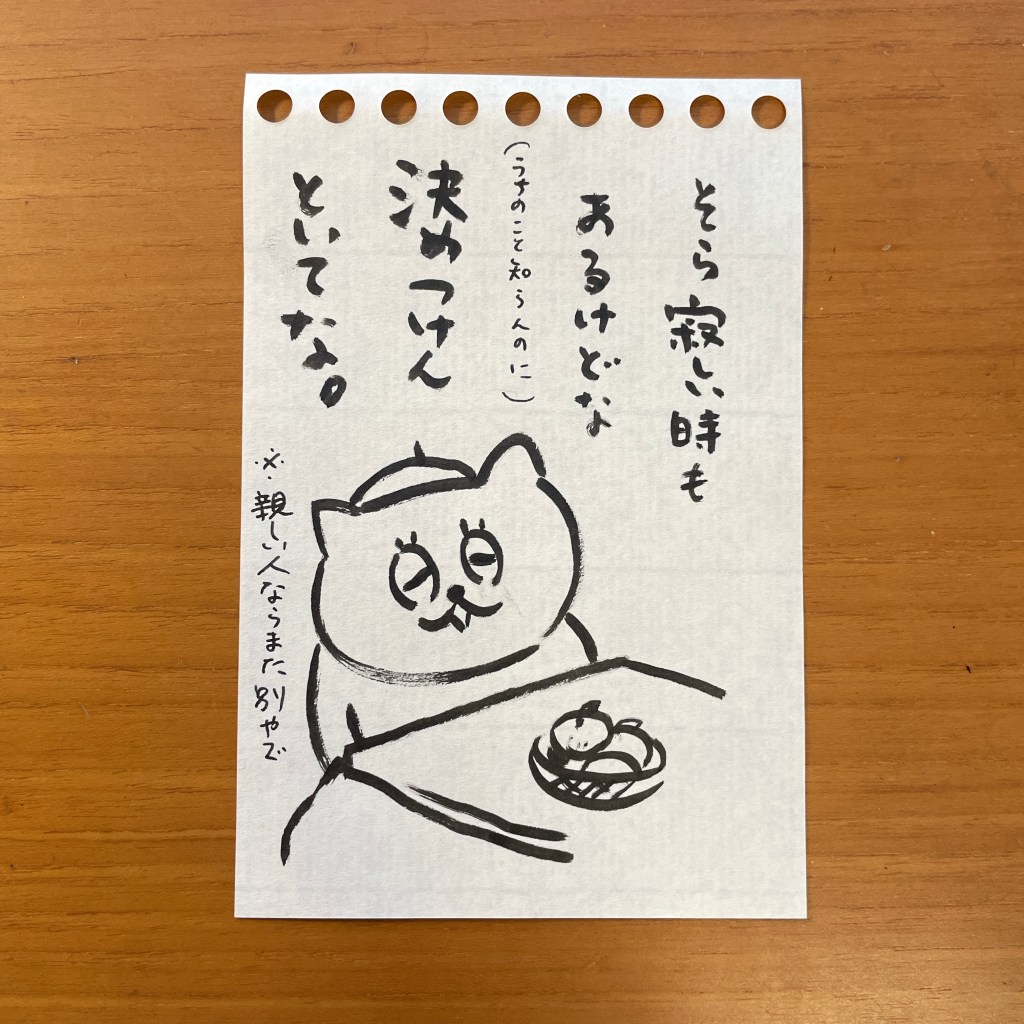 そら寂しい時も
あるけどな
(うちのこと知らんのに)
決めつけん
といてな。
※親しい人ならまた別やで